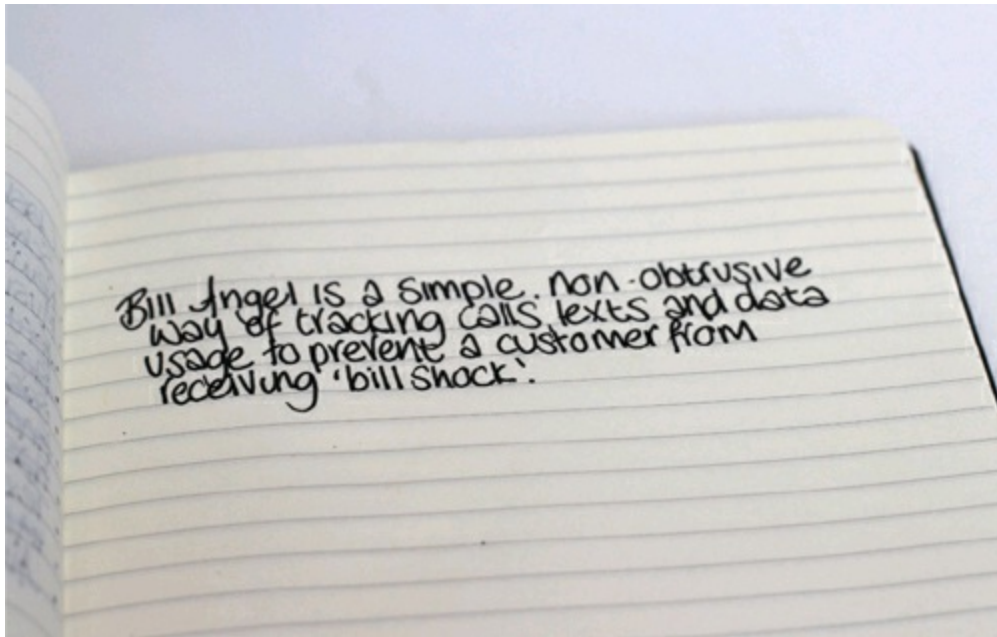 Bill Angel is a simple. non-obtrusive
way of tracking calls texts and data
usage to prevent a customer from
receiving 'bill shock'.